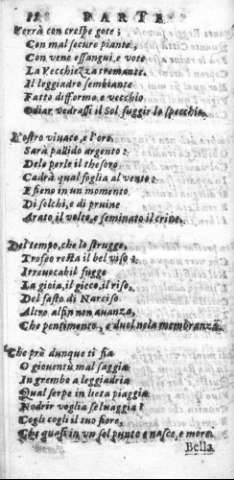 PARTE
Verrà con crespe gote;
Con mal secure piante,
Con vene essangui, e vote
La Vecchiezza tremante.
Il leggiadro sembiante
Fatto difforme, e vecchio
Odiar vedrassi il Sol fuggir lo specchio.
Vostro viuace, e l'oro,
Sarà pallido argento:
Dele perle il thesoro
Cadrà qual foglia al vento:
E fieno in un momento
Di solchi, e di pruine
Arato il volto, e seminato il crine.
Del tempo, che lo strugge,
Trofeo resta il bel viso:
Irreuocabil fugge
La gioia, il gioco, il riso,
Del fasto di Narciso
Altro alfin non auanza,
Che pentimento, e duol nela membranza.
Che prà dunque ti fia
O giouentù mal saggia
In grembo a leggiadria
Qual serpe in lieta piaggia
Nodrir voglia seluaggia?
Cogli cogli il tuo fiore,
Che quasi in un sol punto e nasce, e more.
Bella